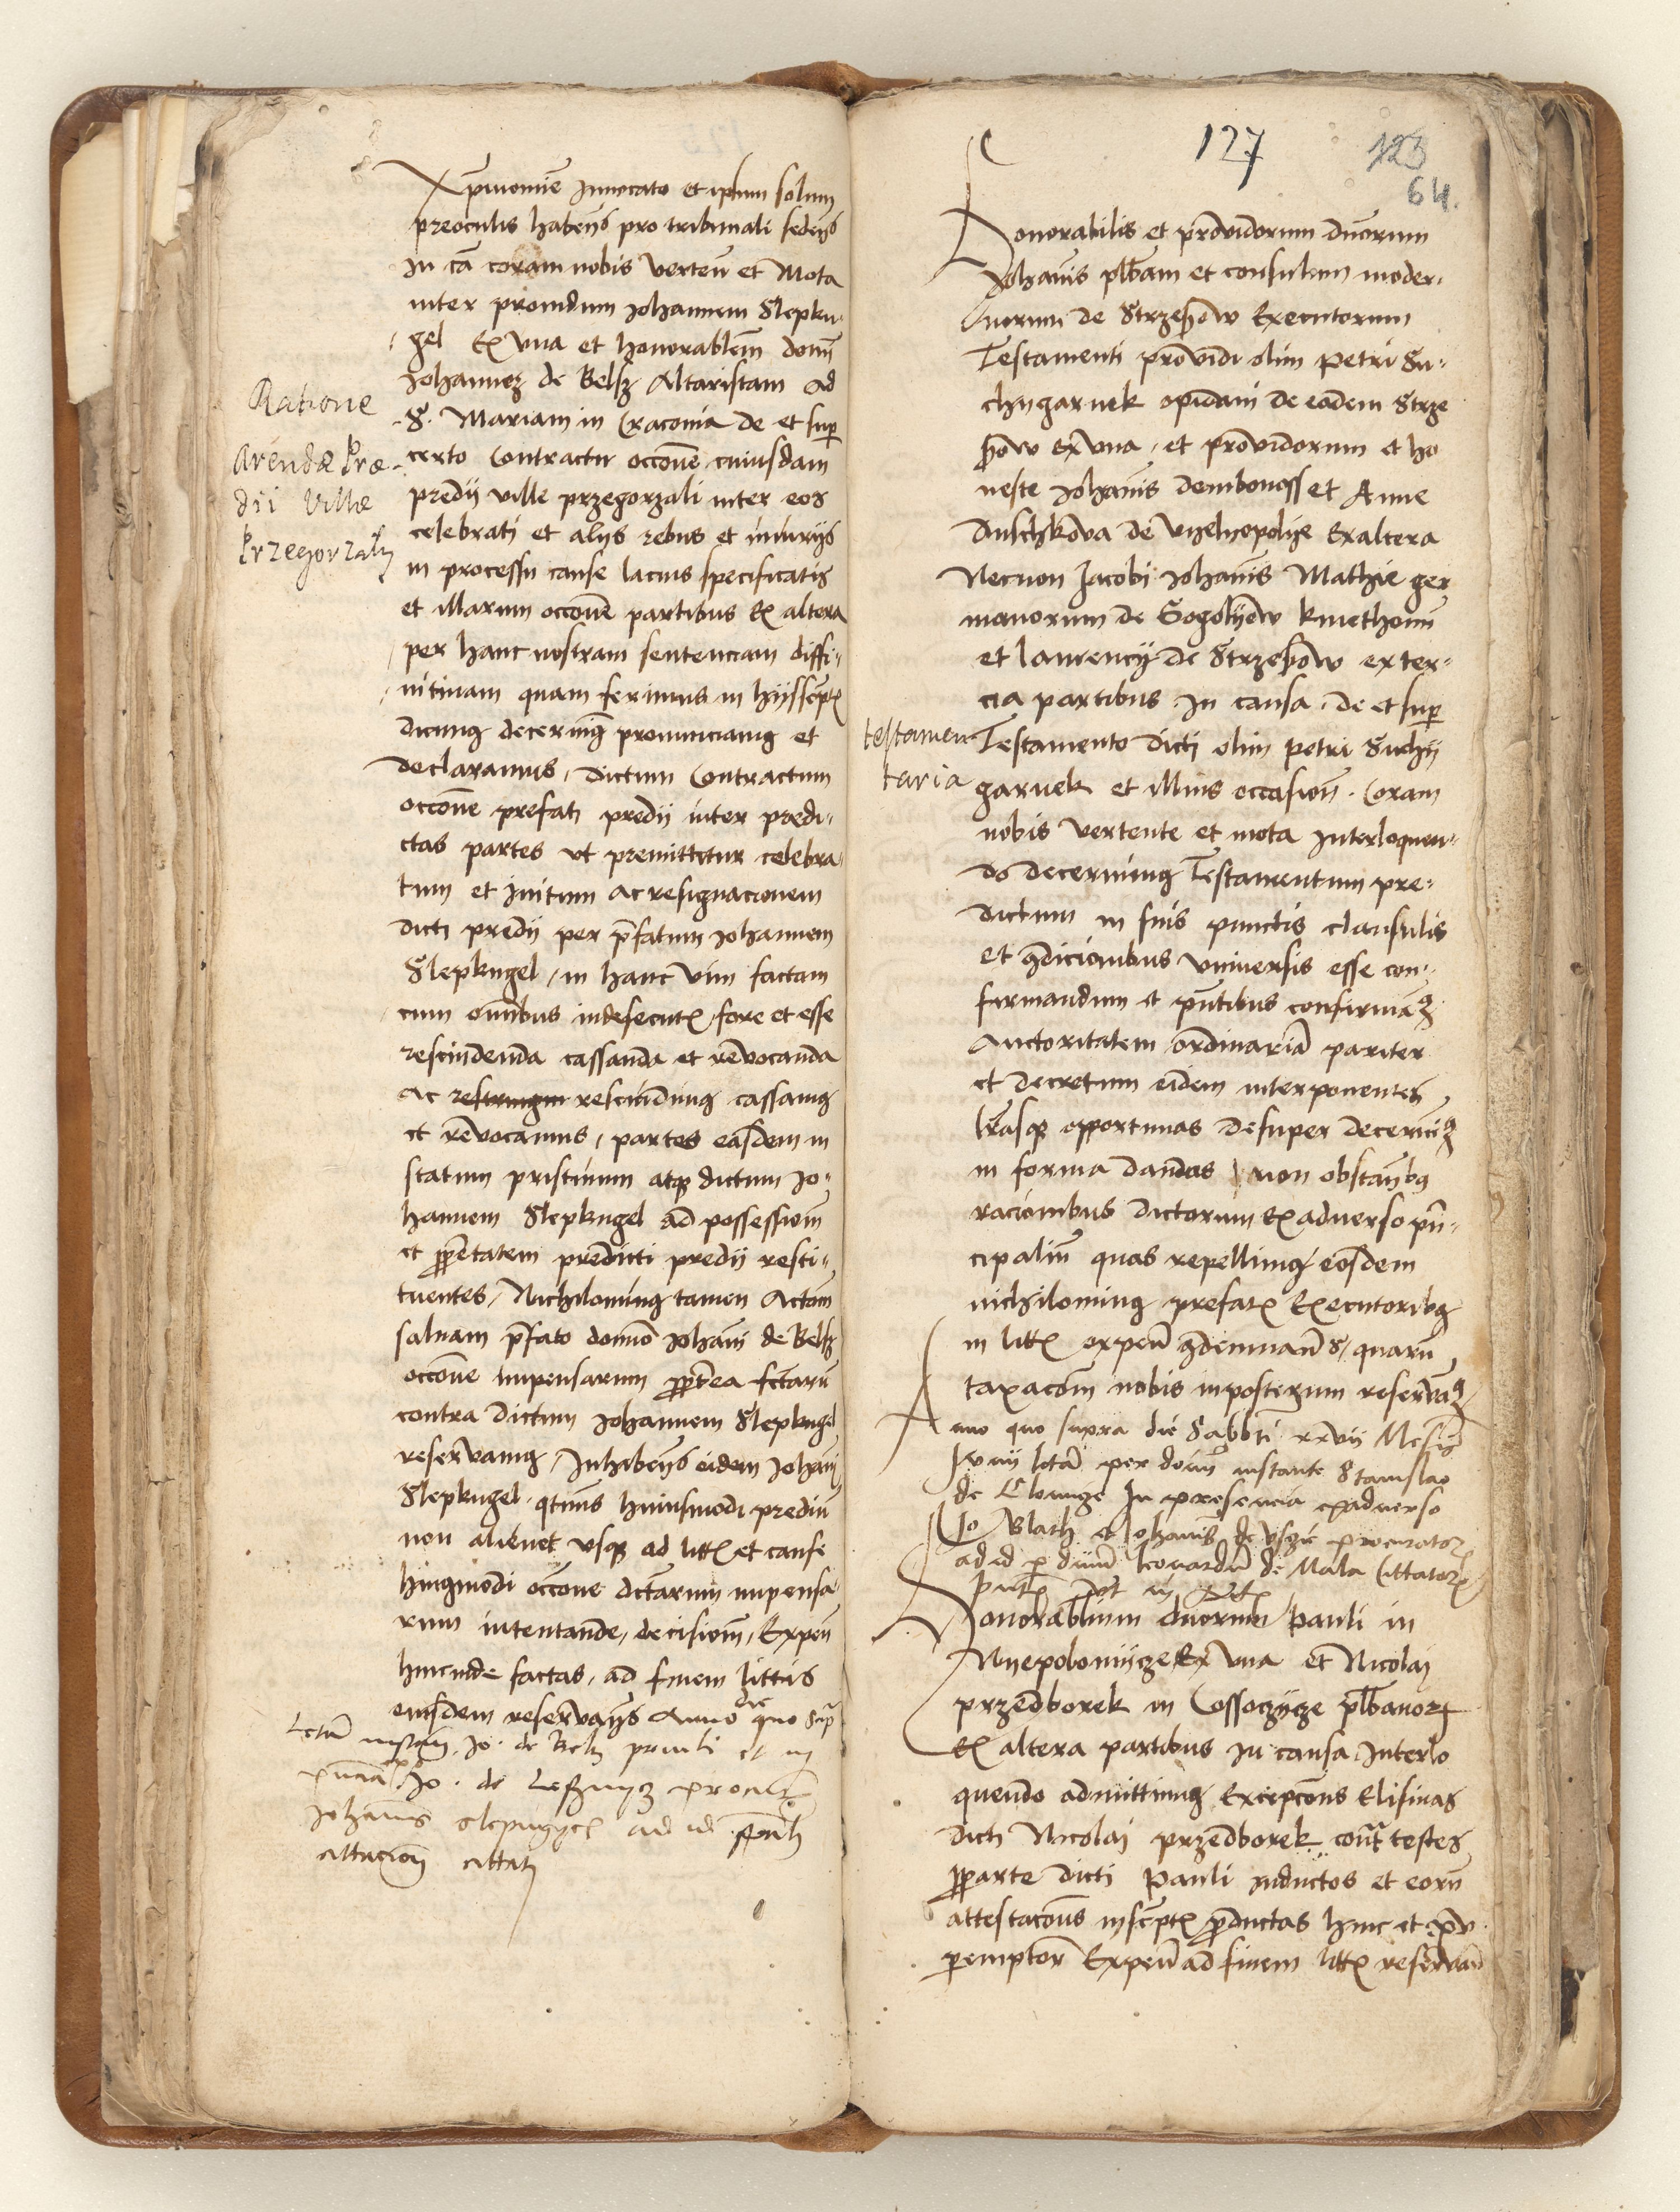 Xp̄i nomīe Innocato et ipsum solum
preoculis habeñs pro tribunali sedeñs
In cā coram nobis verteñ et Mota
inter prouidum Johannem Slepku-
gel Ex vna et honorablēm domī
Johannē de Belsz Altaristam ad
S. Mariam in Cracouia de et sup̄
certo Contractu occōne cuiusdam
predij ville przegorzali inter eos
celebrati et alijs rebus et iniurijs
in processu cause lacius specificatis
et illarum occōne partibus Ex altera
per hanc nostram sentenciam diffi-
nitiuam quam ferimus in hijs scrpt
dicimꝰ decernimꝰ pronunciamꝰ et
declaramus, dictum Contractum
occōne prefati predij inter predi-
ctas partes vt premittitur celebra-
tum et initum ac resignacionem
dicti predij per p̄fatum Johannem
Slepkugel, in hanc vim factam
cum om̄ibus inde secut, fore et esse
rescindenda cassanda et reuocanda
ac rescindimꝰ cassamꝰ
et reuocamus, partes easdem in
statum pristinum atqꝫ dictum Jo-
hannem Slepkugel ad possessiom̄
et pp̄rietatem predicti predij resti-
tuentes, Nichilominꝰ tamen Actōm
saluam p̄fato domīo Johāni de Belsz
occōne Impensarum propterea fctarū
contra dictum Johannem Slepkugel
reseruamꝰ, Inhibeñs eidem Johāni
Slepkugel qtenus huiusmodi prediū
non alienet vsqꝫ ad litt et cause
huiꝰmodi occōne dctarum impensa
rum intentande, decisiom̄, Expeñ
hincinde factas, ad finem littis
eiusdem reseruañs Anno die quo sup̄
Lcta instañ. Jo. de Belz prouli et in
pñcia Jo. de procur
Johānis ad id
cittacioñ cittati
Ratione
Arendæ Præ-
dii Villæ
Przegorzaly
127
123
64.
Honorabilis et prouidorum dnorum
Johānis plbani et consulum moder-
norum de Strzeszow Executorum
Testamenti prouidi olim Petri Su-
chygarnek opidani de eadem Strze
szow ex vna, et prouidorum et ho
neste Johānis dembonoss et Anne
Duschkowa de Vyelyopolye Exaltera
Necnon Jacobi Johānis Mathie ger
manorum de Gogolyow kmethonū
et laurencij de Strzeszow ex ter-
cia partibus In causa, de et sup̄
Testamento dicti olim petri Suchy
garnek et illius occasioñ. Coram
nobis vertente et mota Interloquen-
do decernimꝰ Testamentum pre-
dictum in suis punctis clausulis
et ꝯdicionibus vniuersis esse con-
firmandum et pñtibus confirmamꝰ
Auctoritatem ordinariā pariter
et decretum eidem interponentes
lrasqꝫ opportunas desuper decernimꝰ
in forma dandas, non obstantibꝰ
racionibus dictorum Ex aduerso prin-
cipaliū quas repellimꝰ eosdem
nichilominꝰ prefat Executoribꝰ
in litt expeñ ꝯdemnañs, quarū
taxacōm nobis inposterum reseruamꝰ
Anno quo supra die Sabbti xxvij Mēsis
Junij lcta per dōm instante Stanislao
de In presencia exaduerso
Jo Blath et Johānis de vszcie procurator
ad id p dnm̄ leonardū de Mala Cittator
testamen
taria
Honorabilium dnorum Pauli in
Nyepolomijcze Ex vna et Nicolai
przedborek in Cossoczijcze plbanorꝝ
Ex altera partibus In causa Interlo
quendo admittimꝰ Excepcōns Elisiuas
dicti Nicolai przedborek contr testes
pparte dicti Pauli inductos et eorū
attestacōns in script productas hinc et pro
peremptor Expeñ ad finem litt reseruañ